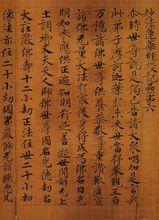 妙法蓮華經授記品第六
爾時世尊說是偈已告諸大眾唱如是言我
此弟子摩訶迦葉於未來世當得奉覲三百
萬億諸佛世尊供養恭敬尊重讚歎廣宣
諸佛無量大法於最後身得成為佛名曰光
明如來應供正遍知明行足善逝世間解無上
士調御丈夫天人師佛世尊國名光德劫名
大莊嚴佛壽十二小劫正法住世二十小劫
像法亦住二十小劫國界嚴飾無諸穢惡瓦